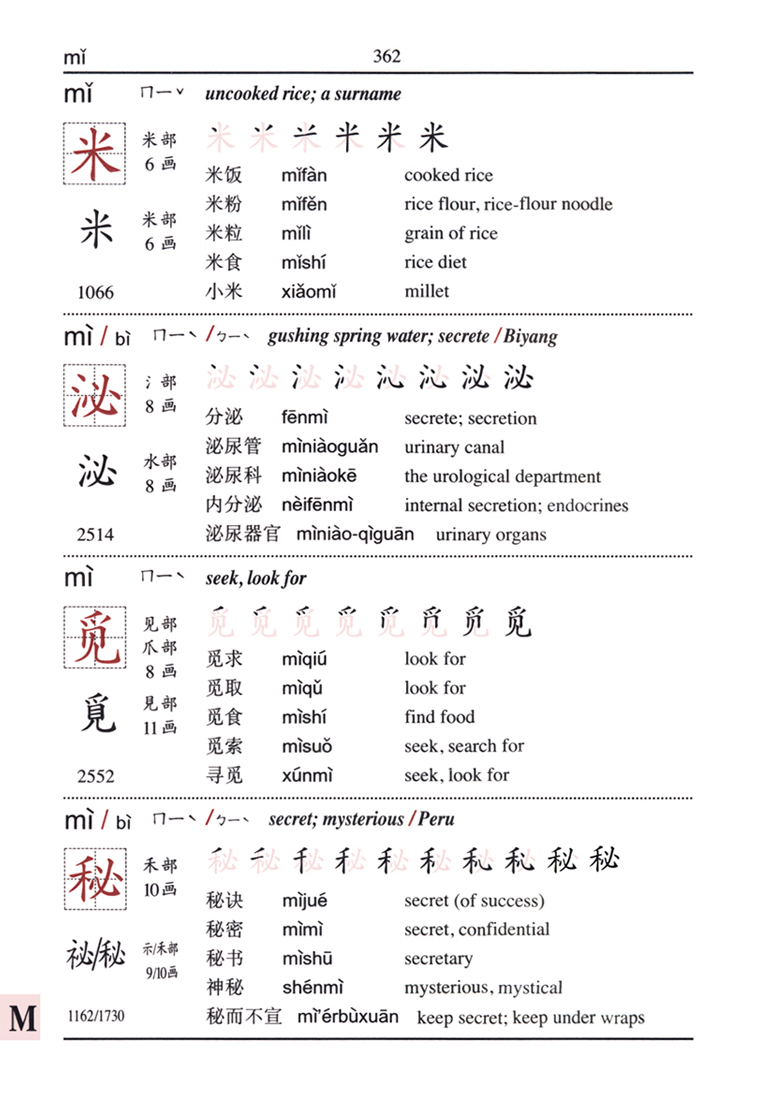 mǐ 362
mǐ ㄇㄧˇ uncooked rice; a surname
米 米部 6 画 米 米 米 米 米 米
米饭 mǐfàn cooked rice
米粉 mǐfěn rice flour, rice-flour noodle
米 米部 6 画 米粒 mǐlì grain of rice
米食 mǐshí rice diet
1066 小米 xiǎomǐ millet
mì / bì ㄇㄧˋ / ㄅㄧˋ gushing spring water; secrete / Biyang
泌 氵部 8 画 泌 泌 泌 泌 泌 泌 泌 泌
分泌 fēnmì secrete; secretion
泌尿管 mìniàoguǎn urinary canal
泌 水部 8 画 泌尿科 mìniàokē the urological department
内分泌 nèifēnmì internal secretion; endocrines
2514 泌尿器官 mìniào-qìguān urinary organs
mì ㄇㄧˋ seek, look for
觅 见部 爪部 8 画 觅 觅 觅 觅 觅 觅 觅 觅
觅求 mìqiú look for
觅取 mìqǔ look for
覓 見部 11画 觅食 mìshí find food
觅索 mìsuǒ seek, search for
2552 寻觅 xúnmì seek, look for
mì / bì ㄇㄧˋ / ㄅㄧˋ secret; mysterious / Peru
秘 禾部 10画 秘 秘 秘 秘 秘 秘 秘 秘 秘 秘
秘诀 mìjué secret (of success)
秘密 mìmì secret, confidential
祕/秘 示/禾部 9/10画 秘书 mìshū secretary
神秘 shénmì mysterious, mystical
M 1162/1730 秘而不宣 mì'érbùxuān keep secret; keep under wraps